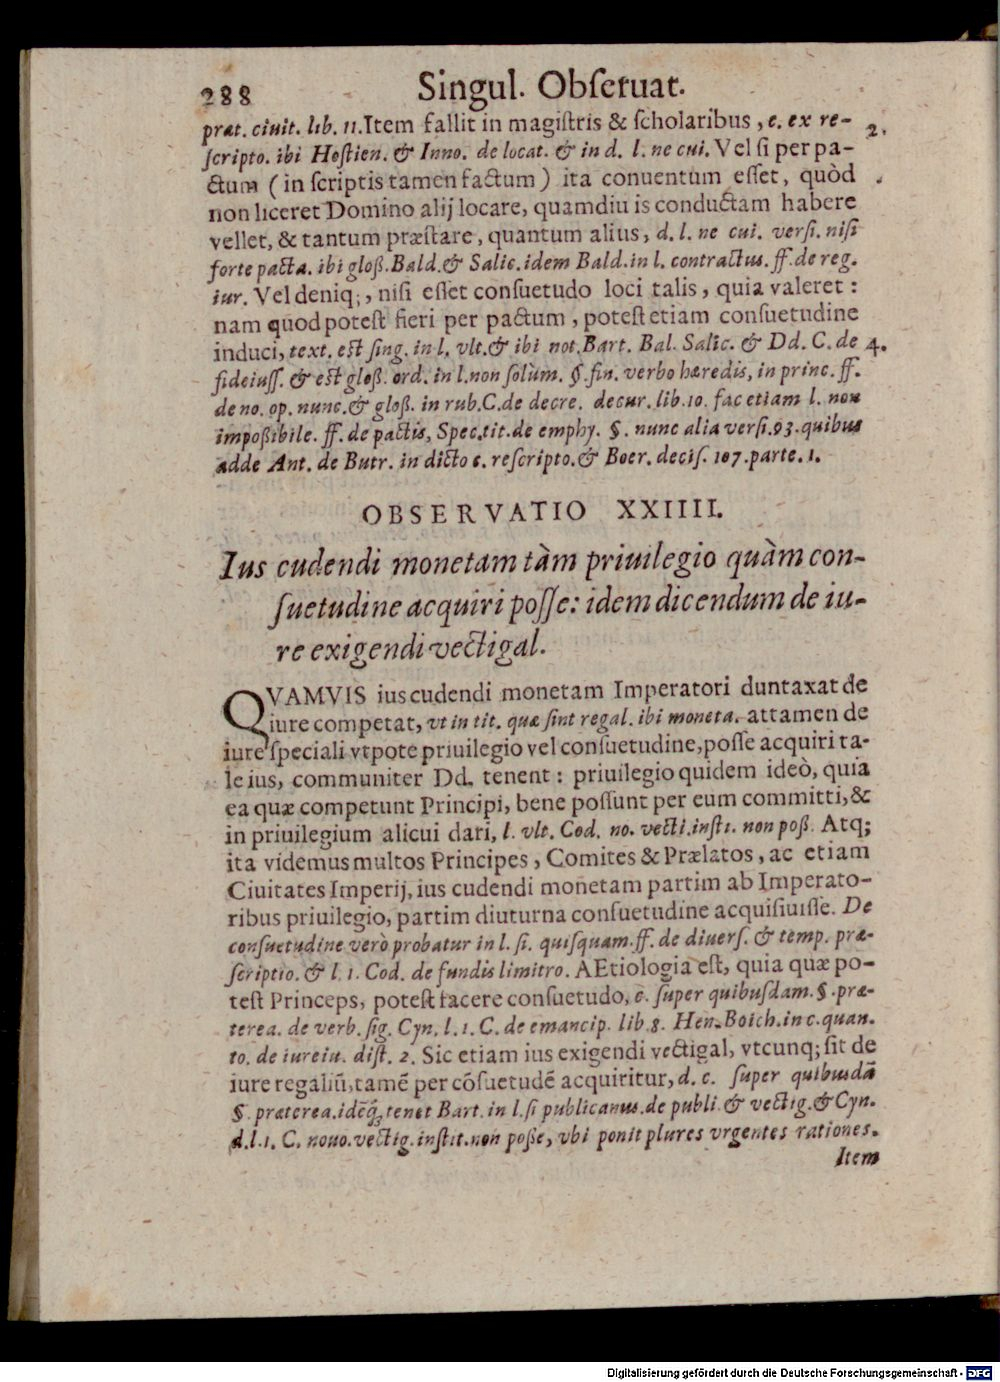 288 Singul. Obſeruat.
præt. ciuit. lib. 11. Item fallit in magiſtris & ſcholaribus, c. ex re- 2.
ſcripto. ibi Hoſtien. & Inno. de locat. & in d. l. ne cui. Vel ſi per pa-
ctum (in ſcriptis tamen factum) ita conuentum eſſet, quòd
non liceret Domino alij locare, quamdiu is conductam habere
vellet, & tantum præſtare, quantum alius, d. l. ne cui. verſi. niſi
forte pacta. ibi gloß. Bald. & Salic. idem Bald. in l. contractus. ff. de reg.
iur. Vel deniq;, niſi eſſet conſuetudo loci talis, quia valeret:
nam quod poteſt fieri per pactum, poteſt etiam conſuetudine
induci, text. eſt ſing. in l. vlt. & ibi not. Bart. Bal. Salic. & Dd. C. de 4.
fideiuſſ. & eſt gloß. ord. in l. non ſolùm. §. fin. verbo hæredis, in princ. ff.
de no. op. nunc. & gloß. in rub. C. de decre. decur. lib. 10. fac etiam l. non
impoßibile. ff. de pactis, Spec. tit. de emphy. §. nunc alia verſi. 93. quibus
adde Ant. de Butr. in dicto c. reſcripto. & Boer. deciſ. 107. parte. 1.
OBSERVATIO XXIIII.
Ius cudendi monetam tàm priuilegio quàm con-
ſuetudine acquiri poſſe: idem dicendum de iu-
re exigendi vectigal.
QVAMVIS ius cudendi monetam Imperatori duntaxat de
iure competat, vt in tit. quæ ſint regal. ibi moneta. attamen de
iure ſpeciali vtpote priuilegio vel conſuetudine, poſſe acquiri ta-
le ius, communiter Dd. tenent: priuilegio quidem ideò, quia
ea quæ competunt Principi, bene poſſunt per eum committi, &
in priuilegium alicui dari, l. vlt. Cod. no. vecti. inſti. non poß. Atq;
ita videmus multos Principes, Comites & Prælatos, ac etiam
Ciuitates Imperij, ius cudendi monetam partim ab Imperato-
ribus priuilegio, partim diuturna conſuetudine acquiſiuiſſe. De
conſuetudine verò probatur in l. ſi. quiſquam. ff. de diuerſ. & temp. præ-
ſcriptio. & l. 1. Cod. de fundis limitro. AEtiologia eſt, quia quæ po-
teſt Princeps, poteſt facere conſuetudo, c. ſuper quibuſdam. §. præ-
terea. de verb. ſig. Cyn. l. 1. C. de emancip. lib. 8. Hen. Boich. in c. quan-
to. de iureiu. diſt. 2. Sic etiam ius exigendi vectigal, vtcunq; ſit de
iure regaliũ, tamẽ per cõſuetudẽ acquiritur, d. c. ſuper quibuſdã
§. præterea. idéq́; tenet Bart. in l. ſi publicanus. de publi. & vectig. & Cyn.
d. l. 1. C. nouo. vectig. inſtit. non poße, vbi ponit plures vrgentes rationes.
Item
Digitalisierung gefördert durch die Deutsche Forschungsgemeinschaft - DFG